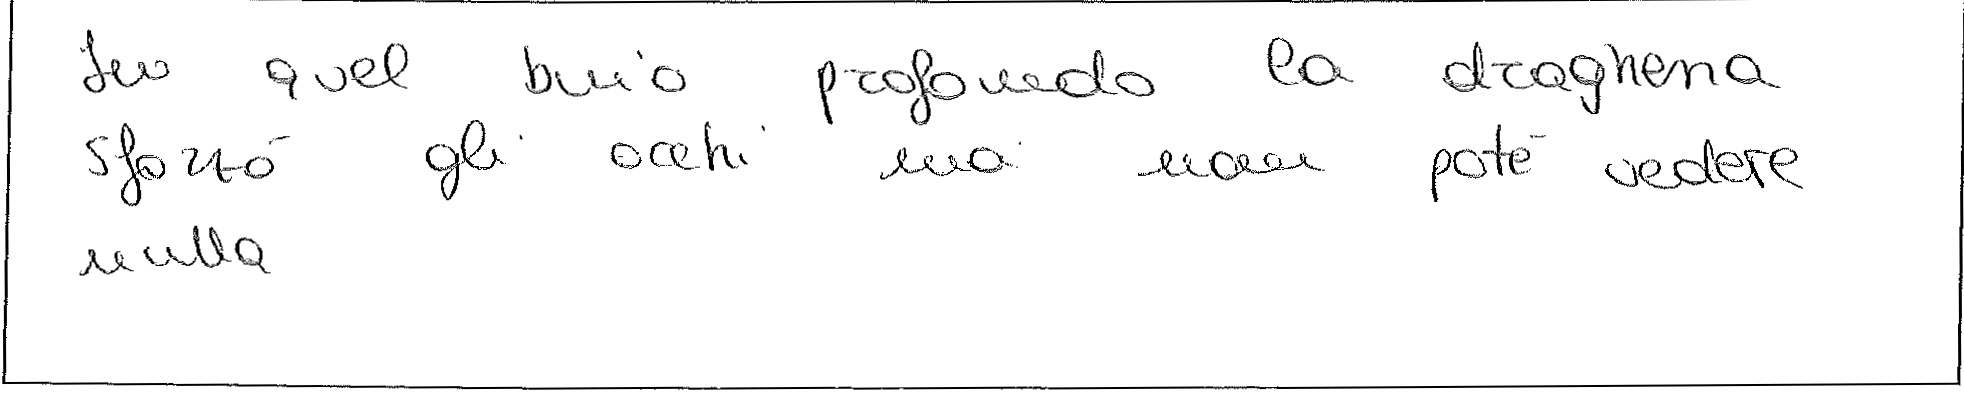 In quel buio profondo la draghena
sforzò gli occhi ma non poté vedere
nulla